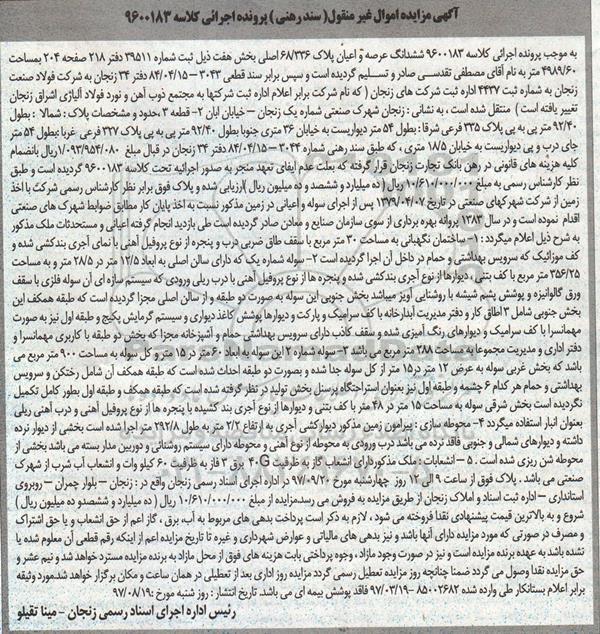 آگهی مزایده اموال غیر منقول( سند رهنی ) پرونده اجرائی کلاسه ۹۶۰۰۱۸۳
به موجب پرونده اجرائی کلاسه ۹۶۰۰۱۸۳ ششدانگ عرصه و اعیان پلاک ۶۸/۳۳۶ اصلی بخش هفت ذیل ثبت شماره ۳۹۵۱۱ دفتر ۲۱۸ صفحه ۲۰۴ بمساحت
۴۹۸۹/۶۰ متر به نام آقای مصطفی تقدسی صادر و تسلیم گردیده است و سپس برابر سند قطعی ۳۰۴۳ – ۸۴/۰۴/۱۵ دفتر ۳۴ زنجان به شرکت فولاد صنعت
زنجان به شماره ثبت ۴۴۳۷ اداره ثبت شرکت های زنجان ( که نام شرکت برابر اعلام اداره ثبت شرکتها به مجتمع ذوب آهن و نورد فولاد آلیاژی اشراق زنجان
تغییر یافته است ) منتقل شده است ، به نشانی : زنجان شهرک صنعتی شماره یک زنجان – خیابان ابان ۲- قطعه ۳ ،حدود و مشخصات پلاک : شمالا : بطول
۹۲/۴۰ متر پی به پی پلاک ۳۳۵ فرعی شرقا : بطول ۵۴ متر دیواریست به خیابان ۳۶ متری جنوبا بطول ۹۲/۴۰ متر پی به پی پلاک ۳۳۷ فرعی غربا بطول ۵۴ متر
جای درب و پی دیواریست به خیابان ۱۸/۵ متری ، که طبق سند رهنی شماره ۳۰۴۴ – ۸۴/۰۴/۱۵ دفتر ۳۴ زنجان در قبال مبلغ ۱/۰۹۳/۹۵۴/۰۸۰ریال بانضمام
کلیه هزینه های قانونی در رهن بانک تجارت زنجان قرار گرفته که بعلت عدم ایفای تعهد منجر به صدور اجرائیه تحت کلاسه ۹۶۰۰۱۸۳ گردیده است و طبق
نظر کارشناس رسمی به مبلغ ۱۰/۶۱۰/۰۰۰/۰۰۰ ریال( ده میلیارد و ششصد و ده میلیون ریال )ارزیابی شده و پلاک فوق برابر نظر کارشناس رسمی شرکت با اخذ
زمین از شرکت شهرکهای صنعتی در تاریخ ۱۳۷۹/۰۴/۰۷ پس از اجرای سوله و اعیانی در زمین مذکور نسبت به اخذ پایان کار مطابق ضوابط شهرک های صنعتی
اقدام نموده است و در سال ۱۳۸۳ پروانه بهره برداری از سوی سازمان صنایع و معادن صادر گردیده است طی بازدید انجام گرفته اعیانی و مستحدثات ملک مذکور
به شرح ذیل اعلام میگردد : ۱- ساختمان نگهبانی به مساحت ۳۰ متر مربع با سقف طاق ضربی درب و پنجره از نوع پروفیل آهنی با نمای آجری بندکشی شده و
کف موزائیک که سرویس بهداشتی و حمام در داخل آن اجرا گردیده است ۲- سوله شماره یک که دارای سالن اصلی به ابعاد ۱۲/۵ متر در ۲۸/۵ متر و به مساحت
۳۵۶/۲۵ متر مربع با کف بتنی ، دیوارها از نوع آجری بندکشی شده و پنجره ها از نوع پروفیل آهنی با درب ریلی ورودی که سیستم سازه ای آن سوله فلزی با سقف
ورق گالوانیزه و پوشش پشم شیشه با روشنایی آویز میباشد بخش جنوبی این سوله به صورت دو طبقه و از سالن اصلی مجزا گردیده است که طبقه همکف این
بخش جنوبی شامل ۳ اطاق کار و دفتر مدیریت آبدارخانه با کف سرامیک و پارکت و دیوارها پوشش کاغذ دیواری و سیستم گرمایش پکیج و طبقه اول نیز به صورت
مهمانسرا با کف سرامیک و دیوارهای رنگ آمیزی شده و سقف کاذب دارای سرویس بهداشتی حمام و آشپزخانه مجزا که بخش دو طبقه با کاربری مهمانسرا و
دفتر اداری و مدیریت مجموعا به مساحت ۲۸۸ متر مربع می باشد ۳ – سوله شماره ۲ این سوله به ابعاد ۶۰ متر در ۱۵ متر و کل سوله به مساحت ۹۰۰ متر مربع می
باشد که بخش غربی سوله به عرض ۱۲ متر در ۱۵ متر از کل سوله جدا شده و بصورت دو طبقه احداث شده است که طبقه همکف آن شامل رختکن و سرویس
بهداشتی و حمام هر کدام ۶ چشمه و طبقه اول نیز بعنوان استراحتگاه پرسنل بخش تولید در نظر گرفته شده است که طبقه همکف و طبقه اول بطور کامل تکمیل
نگردیده است بخش شرقی سوله به مساحت ۱۵ متر در ۴۸ متر با کف بتنی و دیوارها از نوع آجری بند کشیده با پنجره ها از نوع پروفیل آهنی و درب آهنی ریلی
بعنوان انبار استفاده میگردد ۴- محوطه سازی : پیرامون زمین مذکور دیوارکشی آجری به ارتفاع ۲/۲ متر به طول ۲۹۲/۸ متر اجرا شده است بخشی از دیوار نرده
داشته و دیوارهای شمالی و جنوبی فاقد نرده می باشد درب ورودی به محوطه از نوع آهنی و محوطه دارای سیستم روشنائی و دوربین مدار بسته می باشد بخشی از
محوطه شن ریزی شده است . ۵ – انشعابات : ملک مذکور دارای انشعاب گاز به ظرفیت G۴۰ برق ۳ فاز به ظرفیت ۶۰ کیلو وات و انشعاب آب شرب از شهرک
صنعتی می باشد . پلاک فوق از ساعت ۹ الی ۱۲ روز چهارشنبه مورخ ۹۷/۰۹/۲۰ در اداره اجرای اسناد رسمی زنجان واقع در : زنجان – بلوار چمران – روبروی
استانداری – اداره ثبت اسناد و املاک زنجان از طریق مزایده به فروش می رسد.مزایده از مبلغ ۱۰/۶۱۰/۰۰۰/۰۰۰ ریال ( ده میلیارد و ششصدو ده میلیون ریال )
شروع و به بالاترین قیمت پیشنهادی نقدا فروخته می شود ، لازم به ذکر است پرداخت بدهی های مربوط به آب، برق ، گاز اعم از حق انشعاب و یا حق اشتراک
و مصرف در صورتی که مورد مزایده دارای آنها باشد و نیز بدهی های مالیاتی و عوارض شهرداری و غیره تا تاریخ مزایده اعم از اینکه رقم قطعی آن معلوم شده یا
نشده باشد به عهده برنده مزایده است و نیز در صورت وجود مازاد، وجوه پرداختی بابت هزینه های فوق از محل مازاد به برنده مزایده مسترد خواهد شد و نیم عشر و
حق مزایده نقدا وصول می گردد ضمنا چنانچه روز مزایده تعطیل رسمی گردد مزایده روز اداری بعد از تعطیلی در همان ساعت و مکان برگزار خواهد شدمورد وثیقه
برابر اعلام بستانکار طی وارده شده ۸۵۰۰۲۶۸۲ -۹۷/۰۳/۱۹ فاقد پوشش بیمه ای می باشد. تاریخ انتشار : روز شنبه مورخ :۹۷/۰۸/۱۹
رئیس اداره اجرای اسناد رسمی زنجان - مینا تقیلو